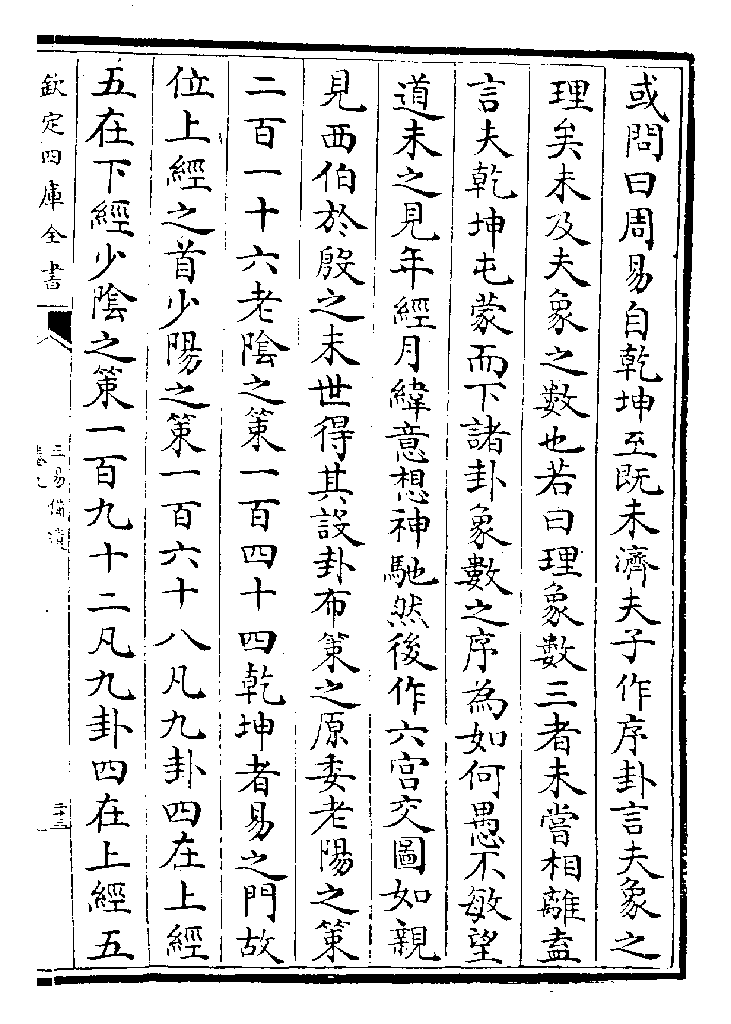 或問曰周易自乾坤至既未濟夫子作序卦言夫象之
理矣未及夫象之數也若曰理象數三者未嘗相離盍
言夫乾坤屯蒙而下諸卦象數之序為如何愚不敏望
道未之見年經月緯意想神馳然後作六宫交圖如親
見西伯於殷之末世得其設卦布策之原委老陽之策
二百一十六老陰之策一百四十四乾坤者易之門故
位上經之首少陽之策一百六十八凡九卦四在上經
五在下經少陰之策一百九十二凡九卦四在上經五
欽定四庫全書
三易備遺